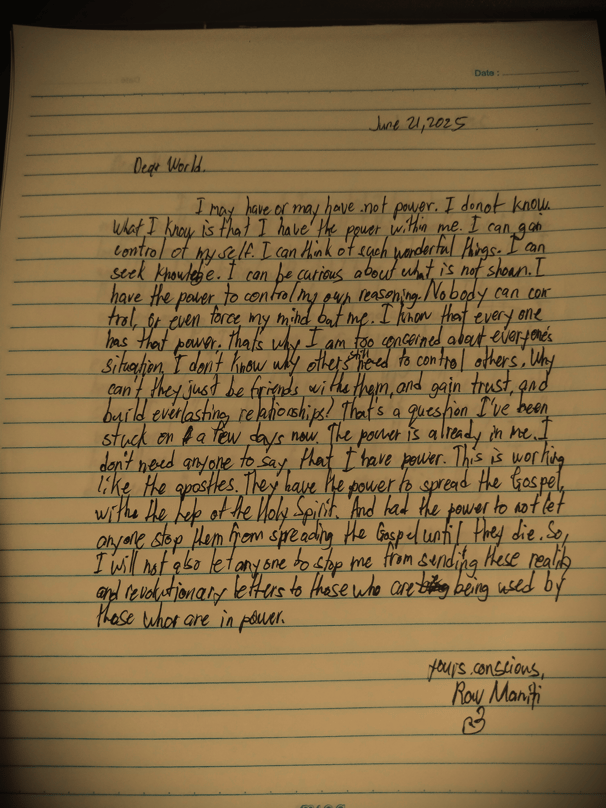 Date:
June 21, 2025
Dear World.
I may have or may have not power. I donot know.
What I know is that I have the power within me. I can gain
control of myself. I can think of such wonderful things. I can
seek knowledge. I can be curious about what is not shown. I
have the power to control my own reasoning. Nobody can con
trol, or even force my mind but me. I know that every one
has that power. that's why I am too concerned about everyone's
situation. I don't know why others still need to control others. Why
can't they just be friends withe them, and gain trust, and
build everlasting relationships? That's a question I've been
stuck on a few days now. The power is already in me. I
don't need anyone to say, that I have power. This is working
like the apostles. They have the power to spread the Gospel,
withe the help of the Holy Spirit. And had the power to not let
anyone stop them from spreading the Gospel until they die. So,
I will not also let anyone to stop me from sending these reality
and revolutionary letters to those who are being used by
those whor are in power.
yours conscious,